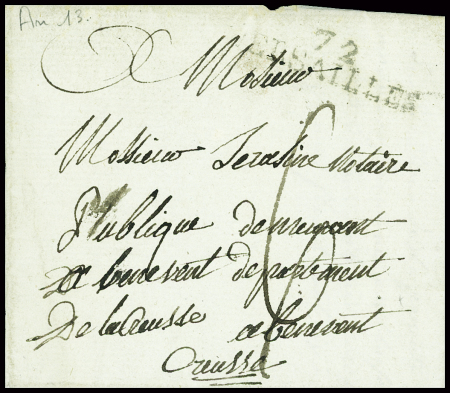 An 13.
72
VERSAILLES
A Mosieur
Mossieur Serasine Notaire
Publique demeurant
a benevent departement
De la Creusse a benevent
Creusse
6